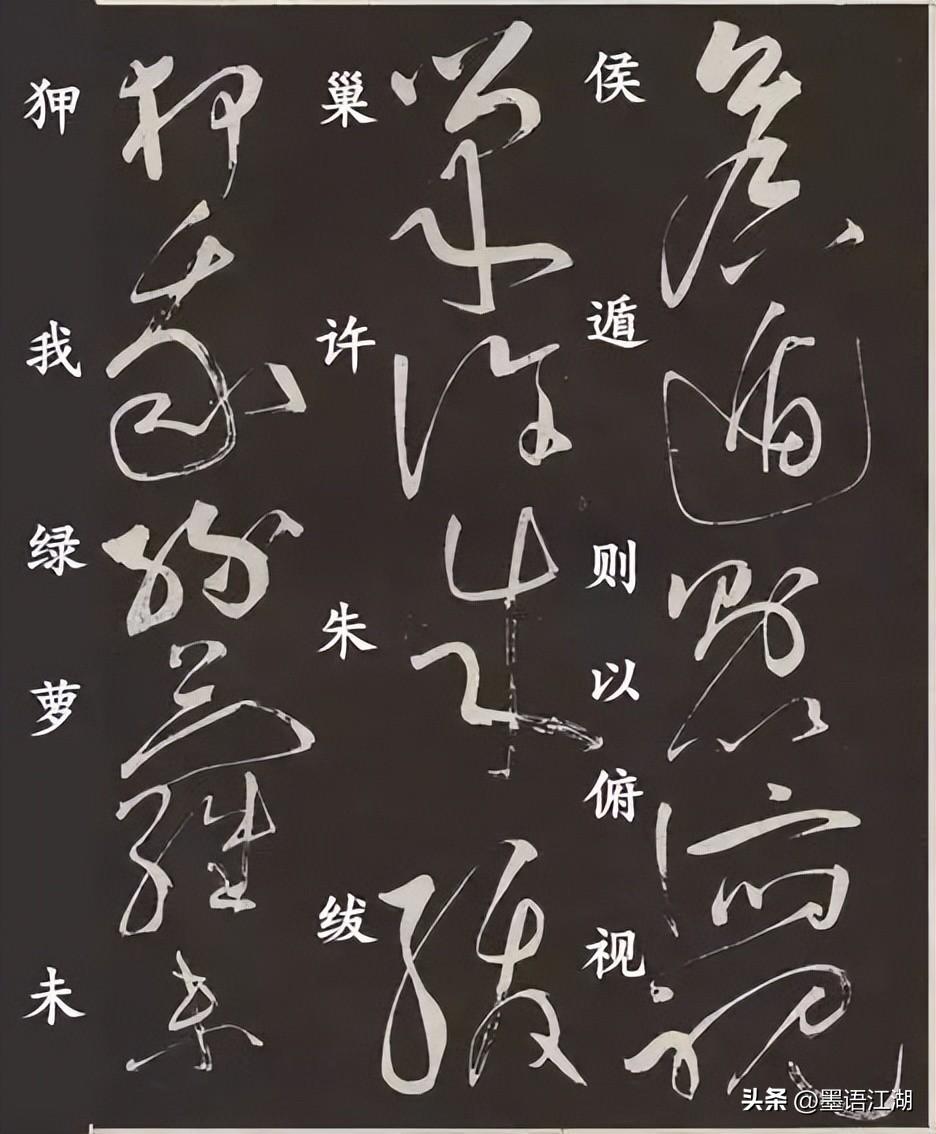 侯遁则以俯视
巢许朱绂
狎我绿萝未
头条 @墨语江湖